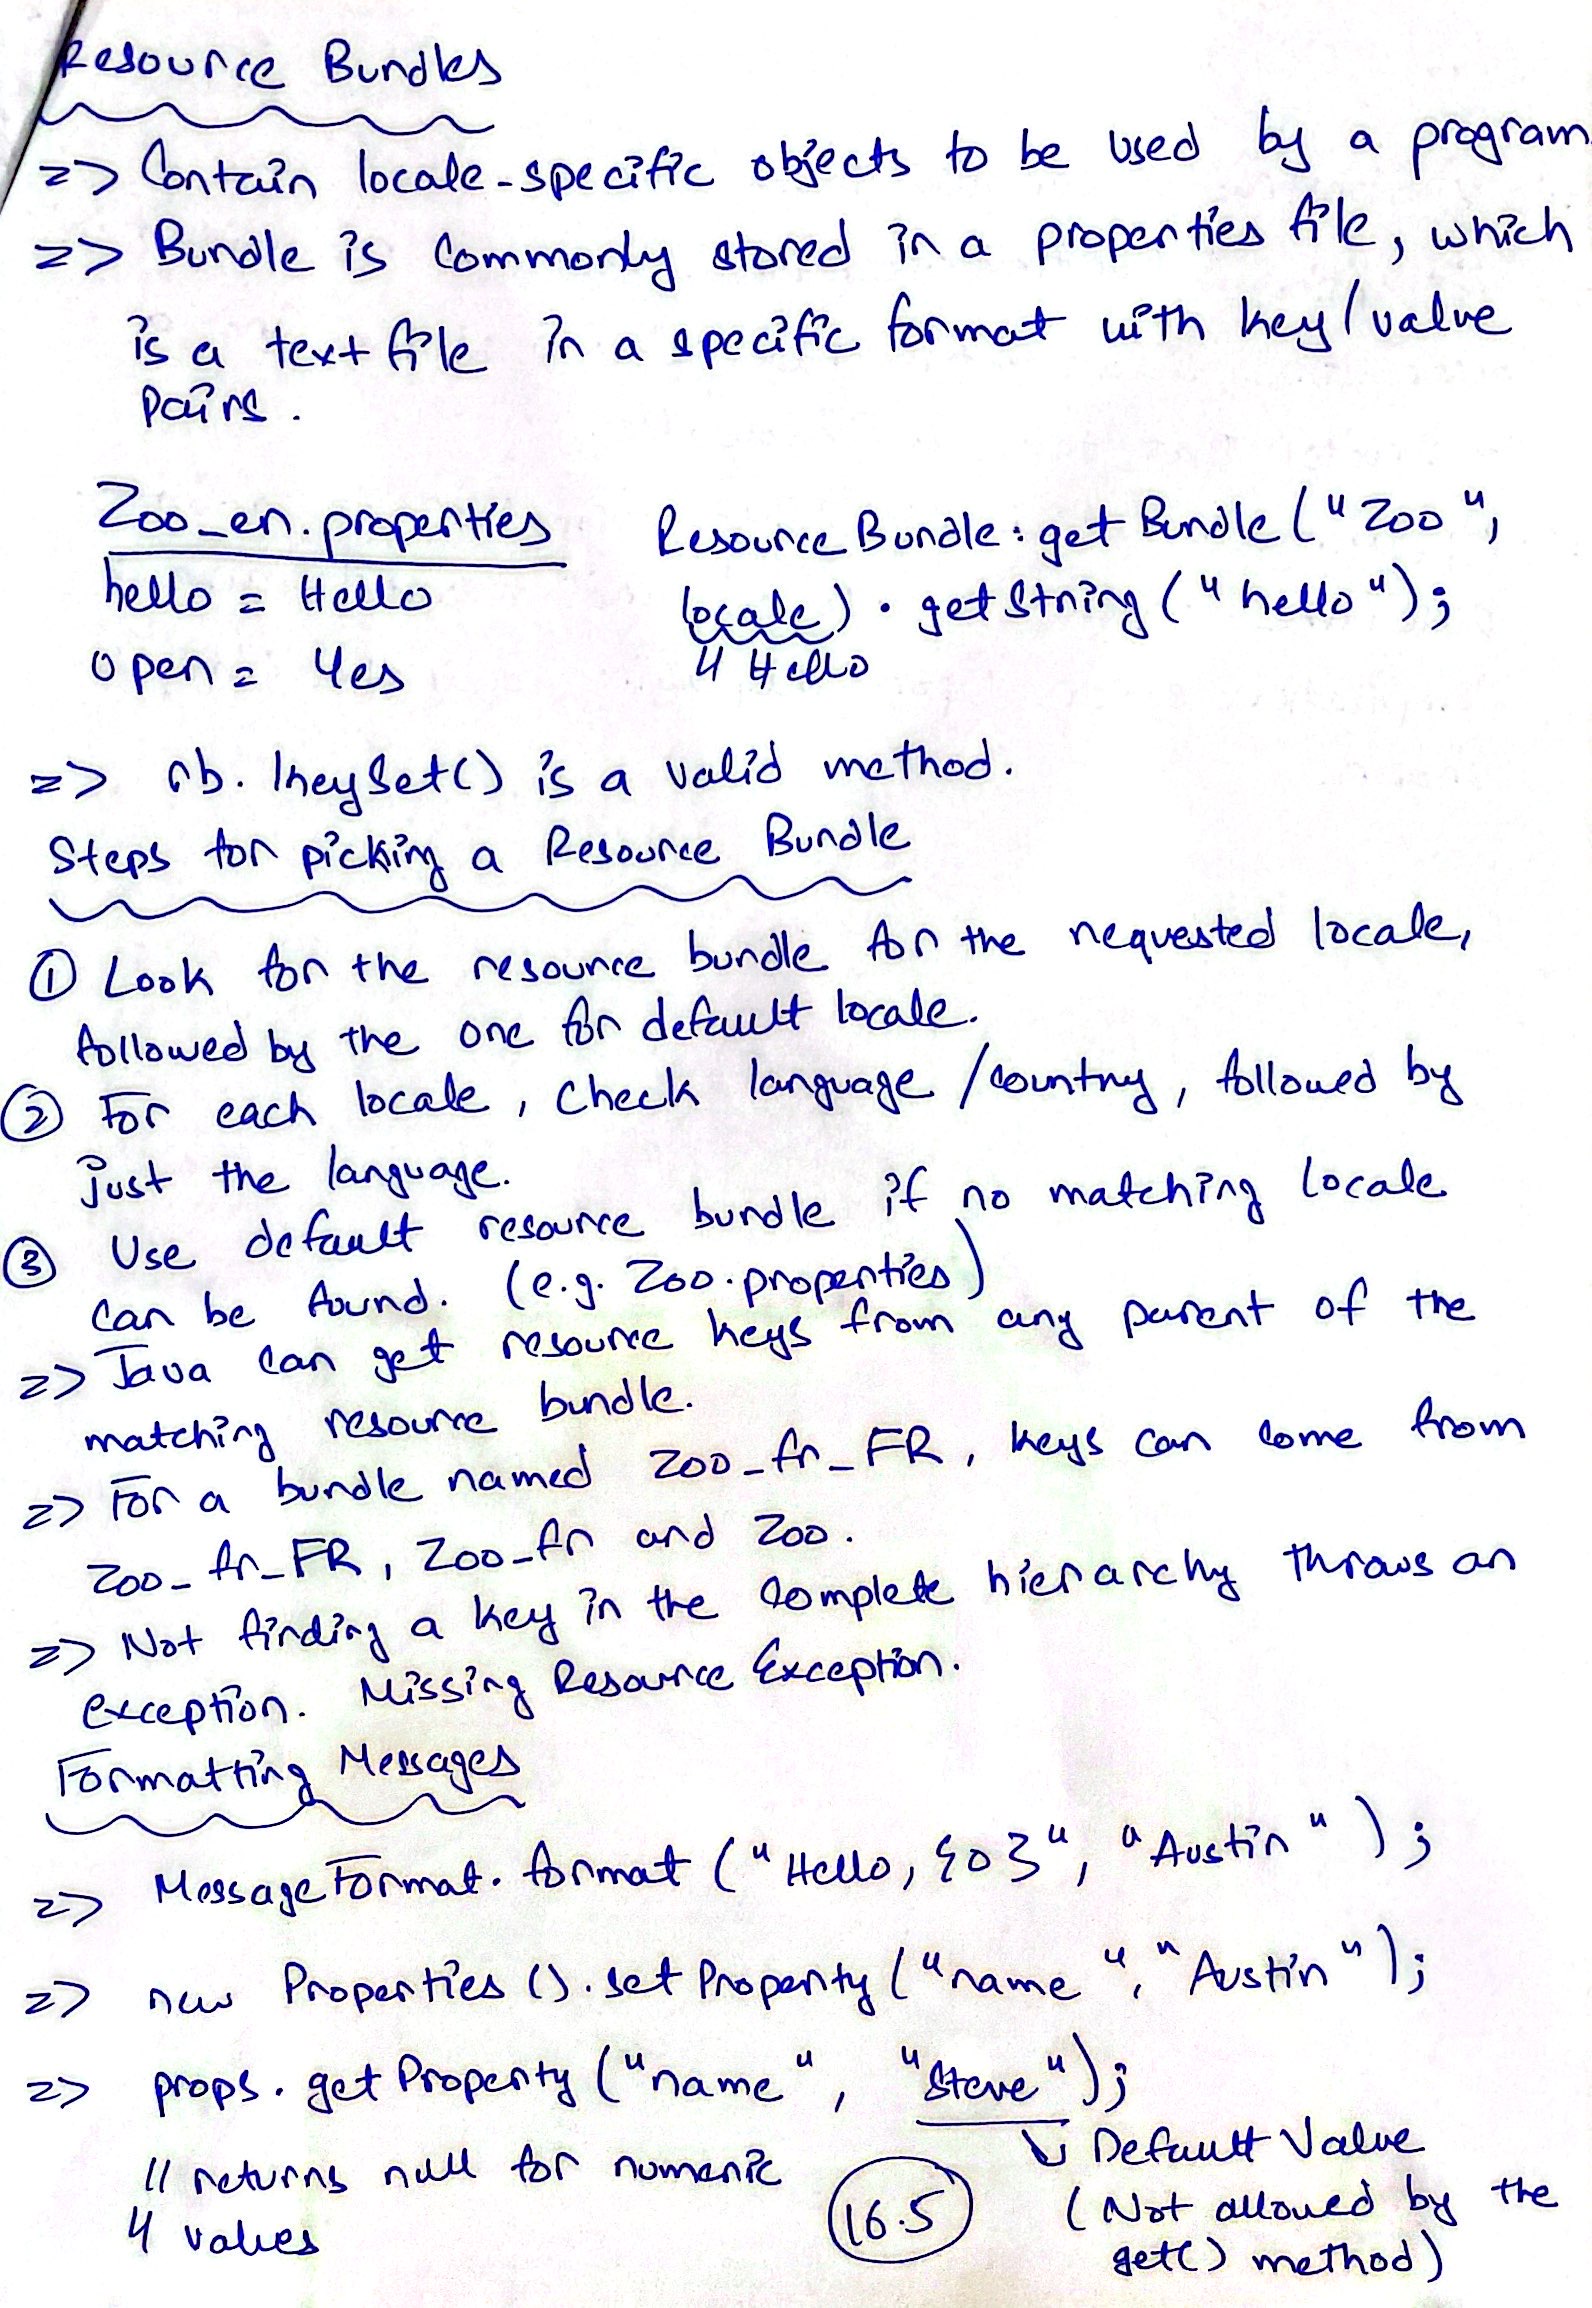 Resource Bundles
=> Contain locale-specific objects to be used by a program.
=> Bundle is commonly stored in a properties file, which
is a text file in a specific format with key/value
pairs.
Zoo_en.properties
hello = Hello
open = Yes
Resource Bundle : get Bundle ("Zoo",
locale).getString("hello");
// Hello
=> rb.keySet() is a valid method.
Steps for picking a Resource Bundle
① Look for the resource bundle for the requested locale,
followed by the one for default locale.
② For each locale, check language/country, followed by
just the language.
③ Use default resource bundle if no matching locale
can be found. (e.g. Zoo.properties)
=> Java can get resource keys from any parent of the
matching resource bundle.
=> For a bundle named Zoo_fr_FR, keys can come from
Zoo_fr_FR, Zoo_fr and Zoo.
=> Not finding a key in the complete hierarchy throws an
exception. Missing Resource Exception.
Formatting Messages
=> MessageFormat.format("Hello, {0}", "Austin");
=> new Properties().setProperty("name", "Austin");
=> props.getProperty("name", "Steve");
Default Value
(Not allowed by the
get() method)
// returns null for numeric
// values
16.5